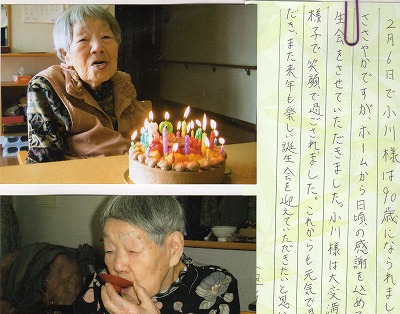 2月6日で小川様は90歳になられまし
ささやかですが、ホームから日頃の感謝を込めて
生会をさせていただきました。小川様は大変満
様子で笑顔で過ごされました。これからも元気で
だき、また来年も楽しい誕生会を迎えていただきたいと思い